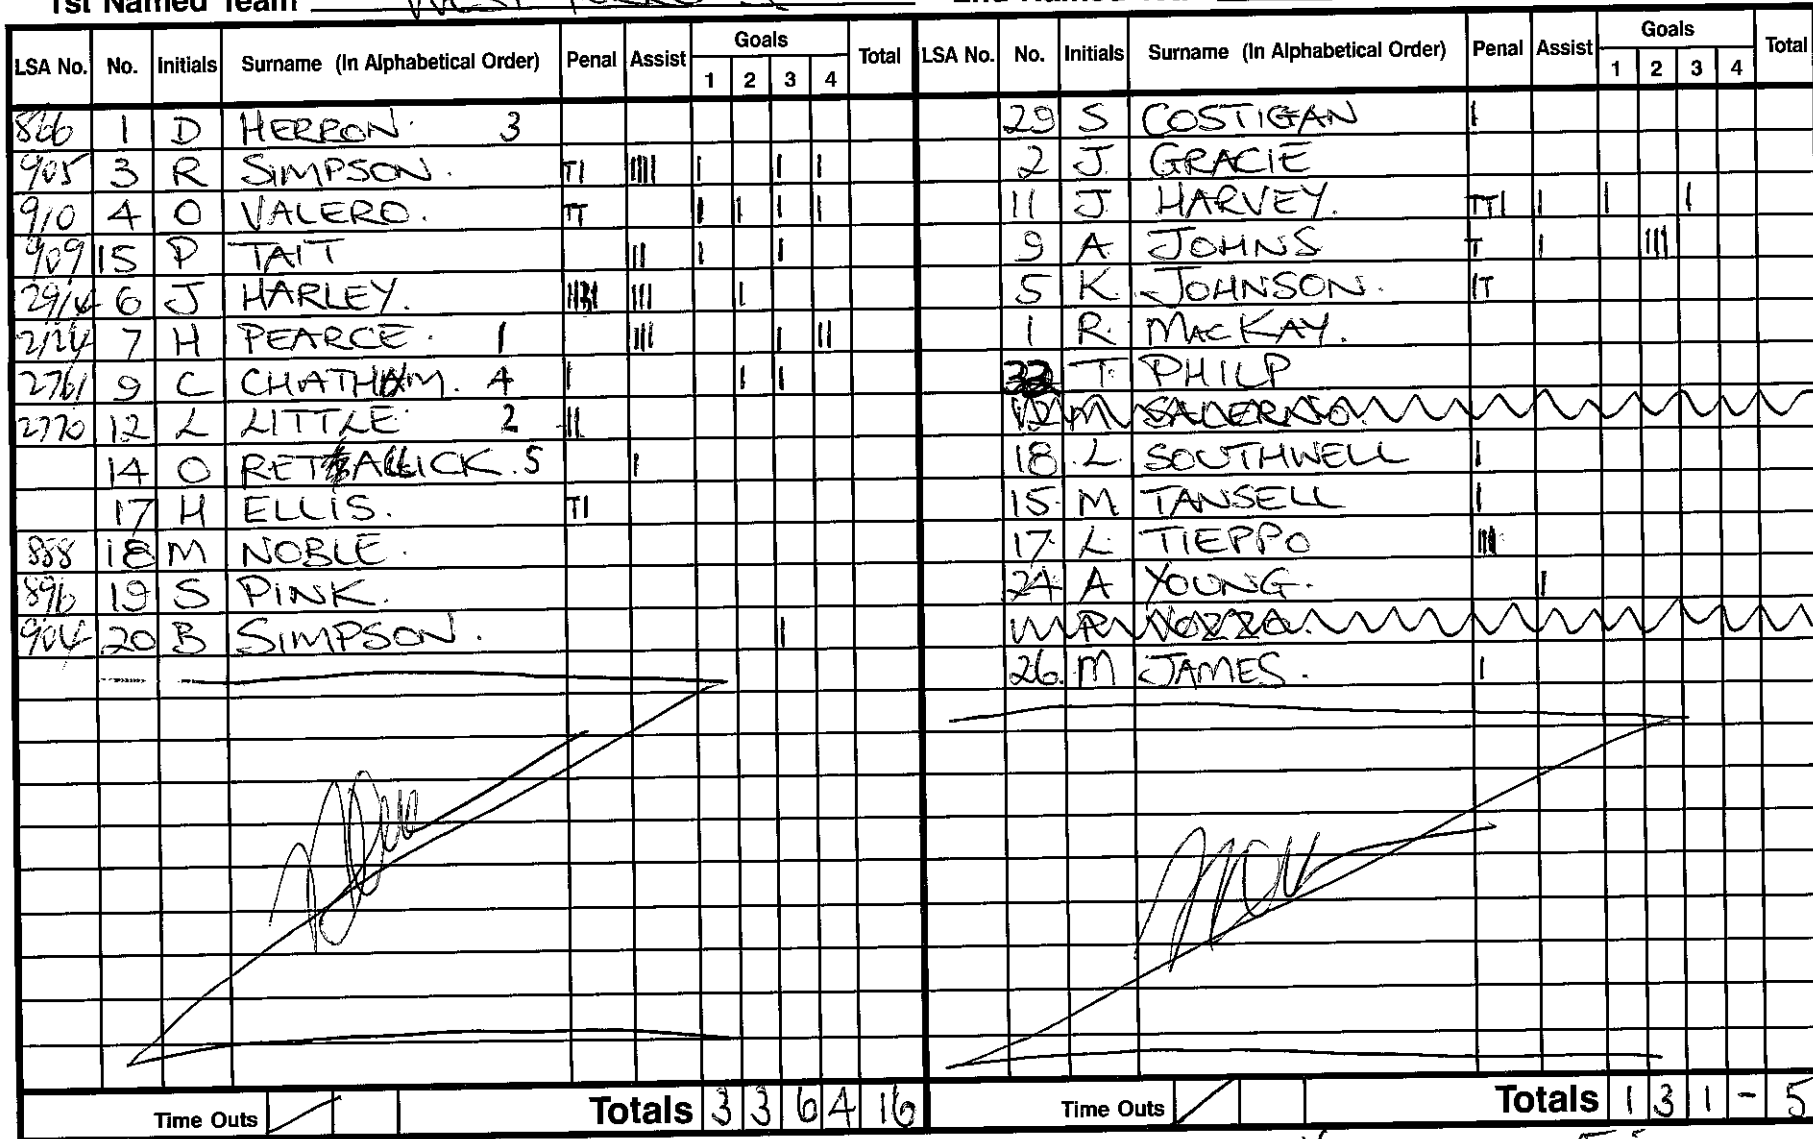 1st Named Team
LSA No. No. Initials Surname (In Alphabetical Order) Penal Assist Goals 1 2 3 4 Total
866 1 D HERRON. 3
905 3 R SIMPSON. TI IIII I I I
910 4 O VALERO. TT I I I I
909 15 P TAIT III I I
2914 6 J HARLEY. III I
2124 7 H PEARCE. 1 III I II
2761 9 C CHATHAM. 4 I I I
2770 12 L LITTLE 2 II
14 O RETALLICK. 5 I
17 H ELLIS. TI
888 18 M NOBLE.
896 19 S PINK.
904 20 B SIMPSON. I
Time Outs Totals 3 3 6 4 16
LSA No. No. Initials Surname (In Alphabetical Order) Penal Assist Goals 1 2 3 4 Total
29 S COSTIGAN I
2 J. GRACIE
11 J HARVEY. TTI I I I
9 A JOHNS T I III
5 K. JOHNSON. IT
1 R. MACKAY.
T. PHILP
12 M SALERNO.
18. L. SOUTHWELL I
15. M TANSELL I
17. L. TIEPPO III
24 A YOUNG. I
R VOZZO.
26. M JAMES. I
Time Outs Totals 1 3 1 - 5